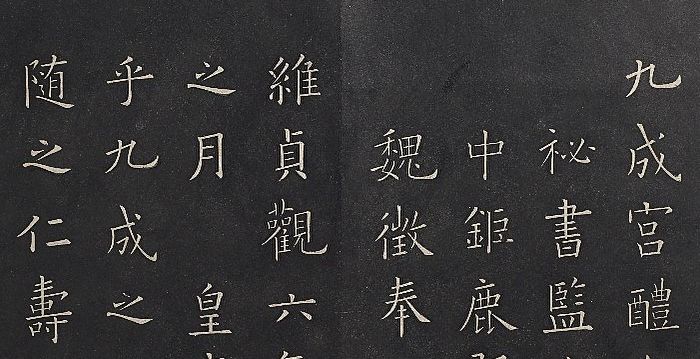 九成宮醴
祕書監
中鉅鹿
魏徵奉
維貞觀六
之月 皇
乎九成之
随之仁壽